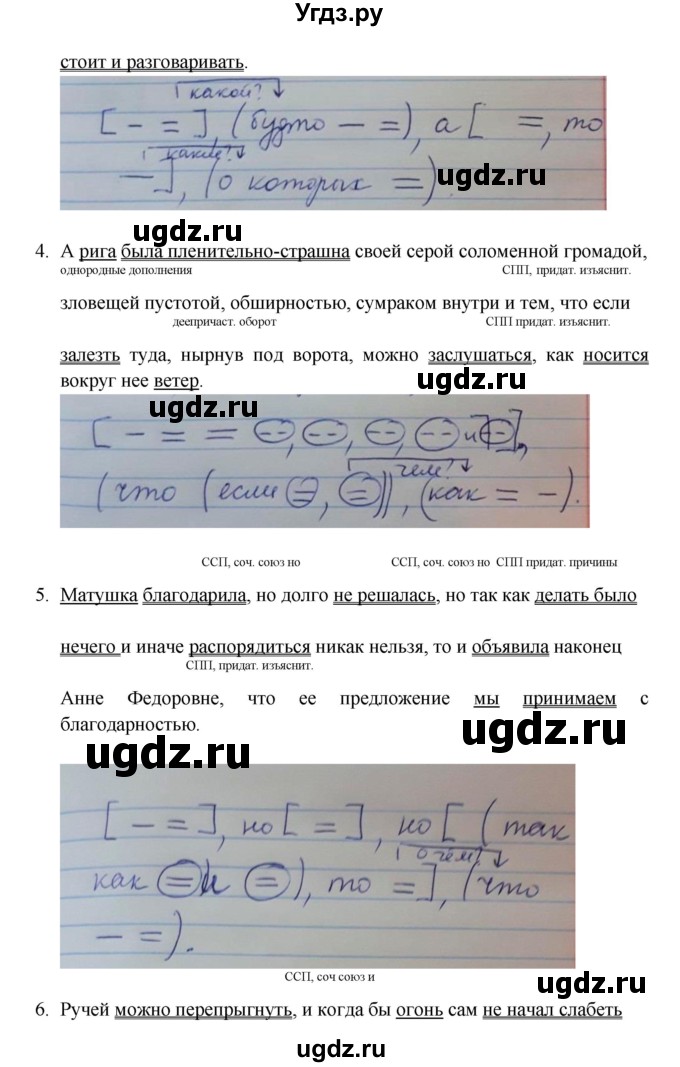 Угдз.ру
стоит и разговаривать.
какой?
[ – = ], (будто – =), а [ =, то
какие?
–], (о которых =).
ugdz.ru
4. А рига была пленительно-страшна своей серой соломенной громадой,
однородные дополнения СПП, придат. изъяснит.
зловещей пустотой, обширностью, сумраком внутри и тем, что если
деепричаст. оборот СПП придат. изъяснит.
залезть туда, нырнув под ворота, можно заслушаться, как носится
вокруг нее ветер.
ugdz.ru ugdz.ru
[ – = = (--), (--), (--), (--) и (--)],
чем?
(что (если =, =)), (как = –).
ССП, соч. союз но ССП, соч. союз но СПП придат. причины
5. Матушка благодарила, но долго не решалась, но так как делать было
нечего и иначе распорядиться никак нельзя, то и объявила наконец
СПП, придат. изъяснит.
Анне Федоровне, что ее предложение мы принимаем с
благодарностью.
ugdz.ru
ugdz.ru
[ – = ], но [ = ], но [ (так
о чём?
как = и =), то =], (что
– =).
ССП, соч союз и
ugdz.ru
6. Ручей можно перепрыгнуть, и когда бы огонь сам не начал слабеть
ugdz.ru